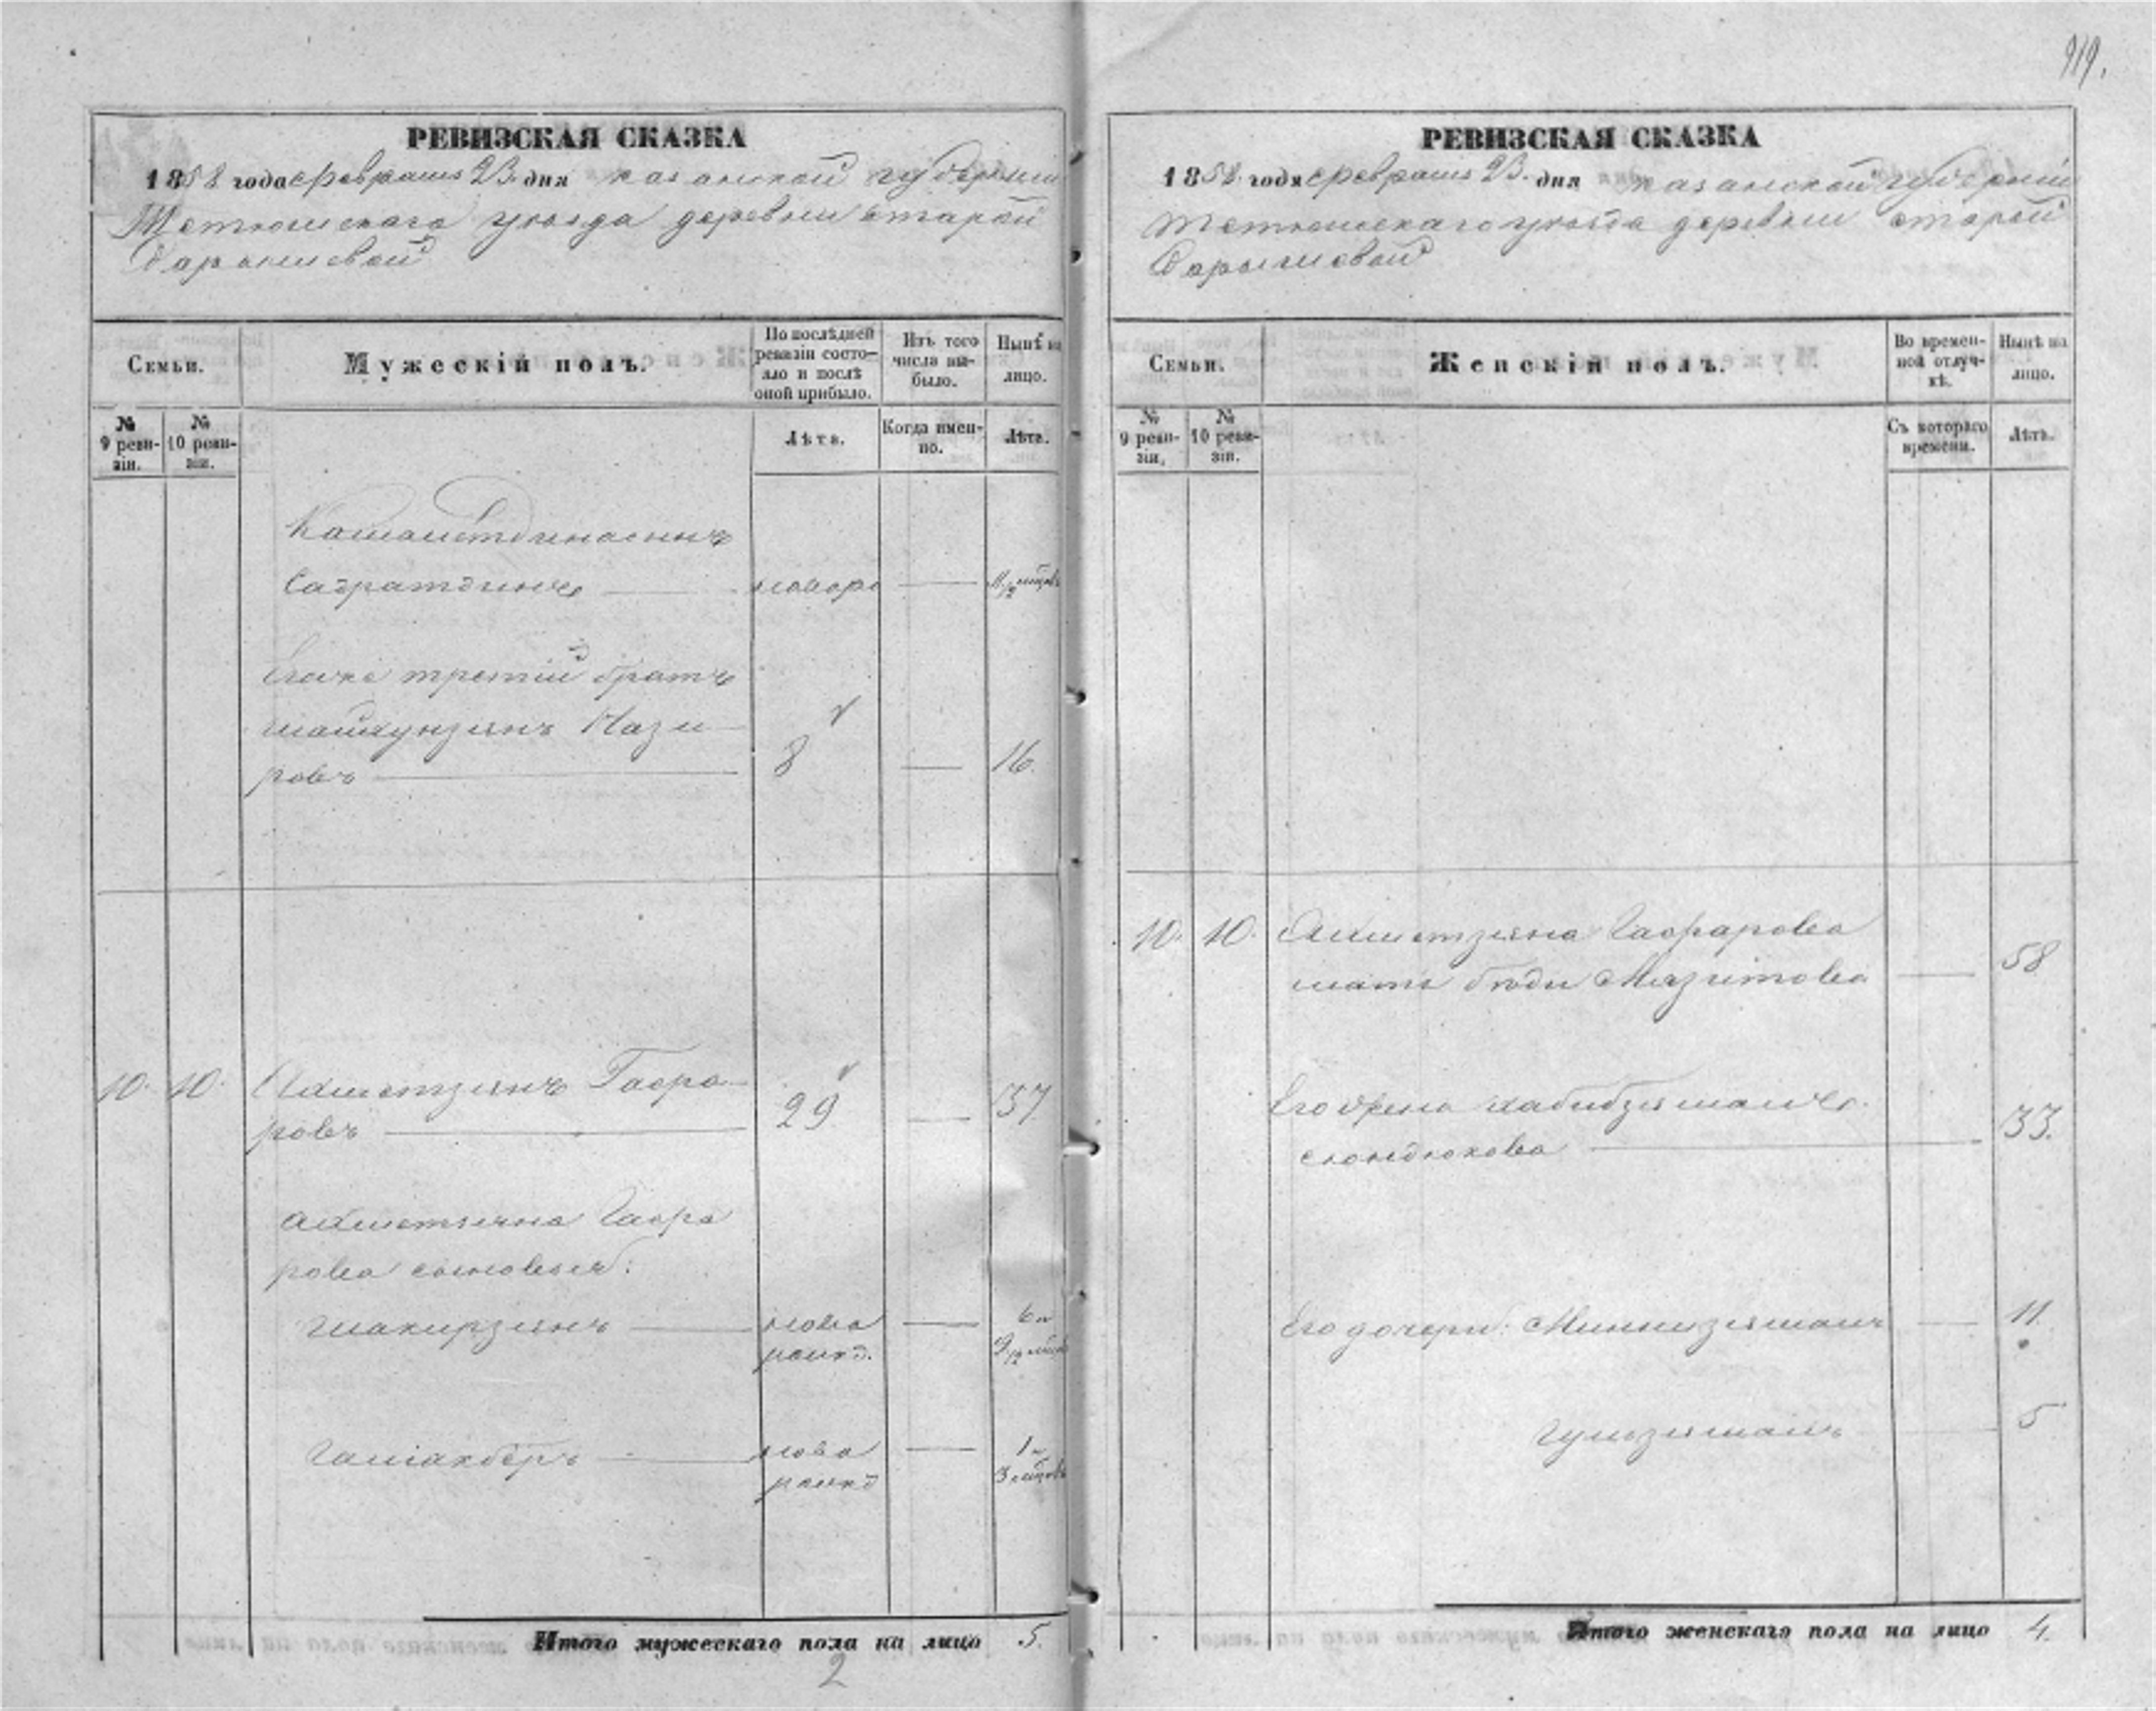 919.
РЕВИЗСКАЯ СКАЗКА
1858 года февраля 23 дня казанской губернии
Тетюшскаго уезда деревни старой
барышевой
Семьи.
Мужескій полъ.
По послѣдней
ревизіи состо-
яло и послѣ
оной прибыло.
Изъ того
числа вы-
было.
Нынѣ на
лицо.
№
9 реви-
зіи.
№
10 реви-
зіи.
Лѣта.
Когда имен-
но.
Лѣта.
сынъ
Садратдинъ
11/12
Его же третий братъ
Нази
ровъ 8 — 16.
10. 10. Ахметзянъ Гафа
ровъ 29 — 37
Ахметзяна Гафа
рова сыновья:
Шакирзянъ нова — 6 и
рожд. 9/12
нова — 1 и
рожд 3
Итого мужескаго пола на лицо 5.
2
РЕВИЗСКАЯ СКАЗКА
1858 года февраля 23. дня казанской губернии
тетюшскаго уезда деревни старой
барышевой
Семьи.
Женскій полъ.
Во времен-
ной отлуч-
кѣ.
Нынѣ на
лицо.
№
9 реви-
зіи.
№
10 реви-
зіи.
Съ котораго
времени.
Лѣтъ.
10. 10. Ахметзяна Гафарова
мать Мязитова — 58
Его жена хабибзямалъ
сюндюкова 33.
Его дочери: Миннизямалъ — 11.
Гулзямалъ 5
Итого женскаго пола на лицо 4.